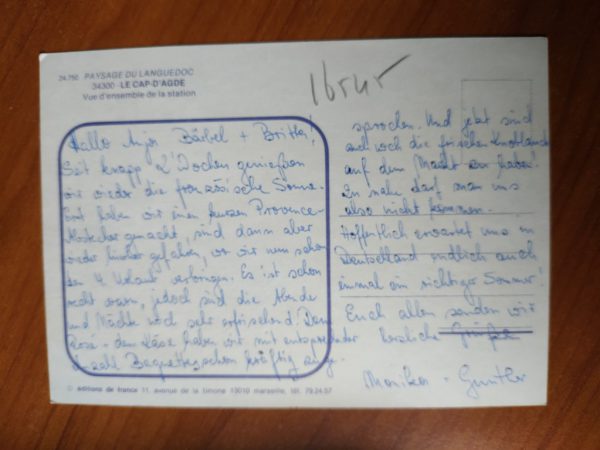 24.750 PAYSAGE DU LANGUEDOC
34300 - LE CAP-D'AGDE
Vue d'ensemble de la station
Hallo Anja Bärbel + Britta!
Seit knapp 2 Wochen genießen
wir wieder die französische Sonne.
haben wir einen kurzen Provence-
Abstecher gemacht, sind dann aber
wieder hierher gefahren, wo wir nun schon
den 4. Urlaub verbringen. Es ist schon
recht warm, jedoch sind die Abende
und Nächte noch sehr erfrischend. Dem
Rosé + dem Käse haben wir mit entsprechender
Anzahl Baguettes schon kräftig zuge-
© éditions de france 11, avenue de la timone 13010 marseille, tél. 79.24.57
sprochen. Und jetzt sind
auch noch die frischen Knoblauch
auf dem Markt zu haben!
Zu nahe darf man uns
also nicht kommen.
Hoffentlich erwartet uns in
Deutschland endlich auch
einmal ein richtiger Sommer!
Euch allen senden wir
herzliche Grüße
Monika + Gunther